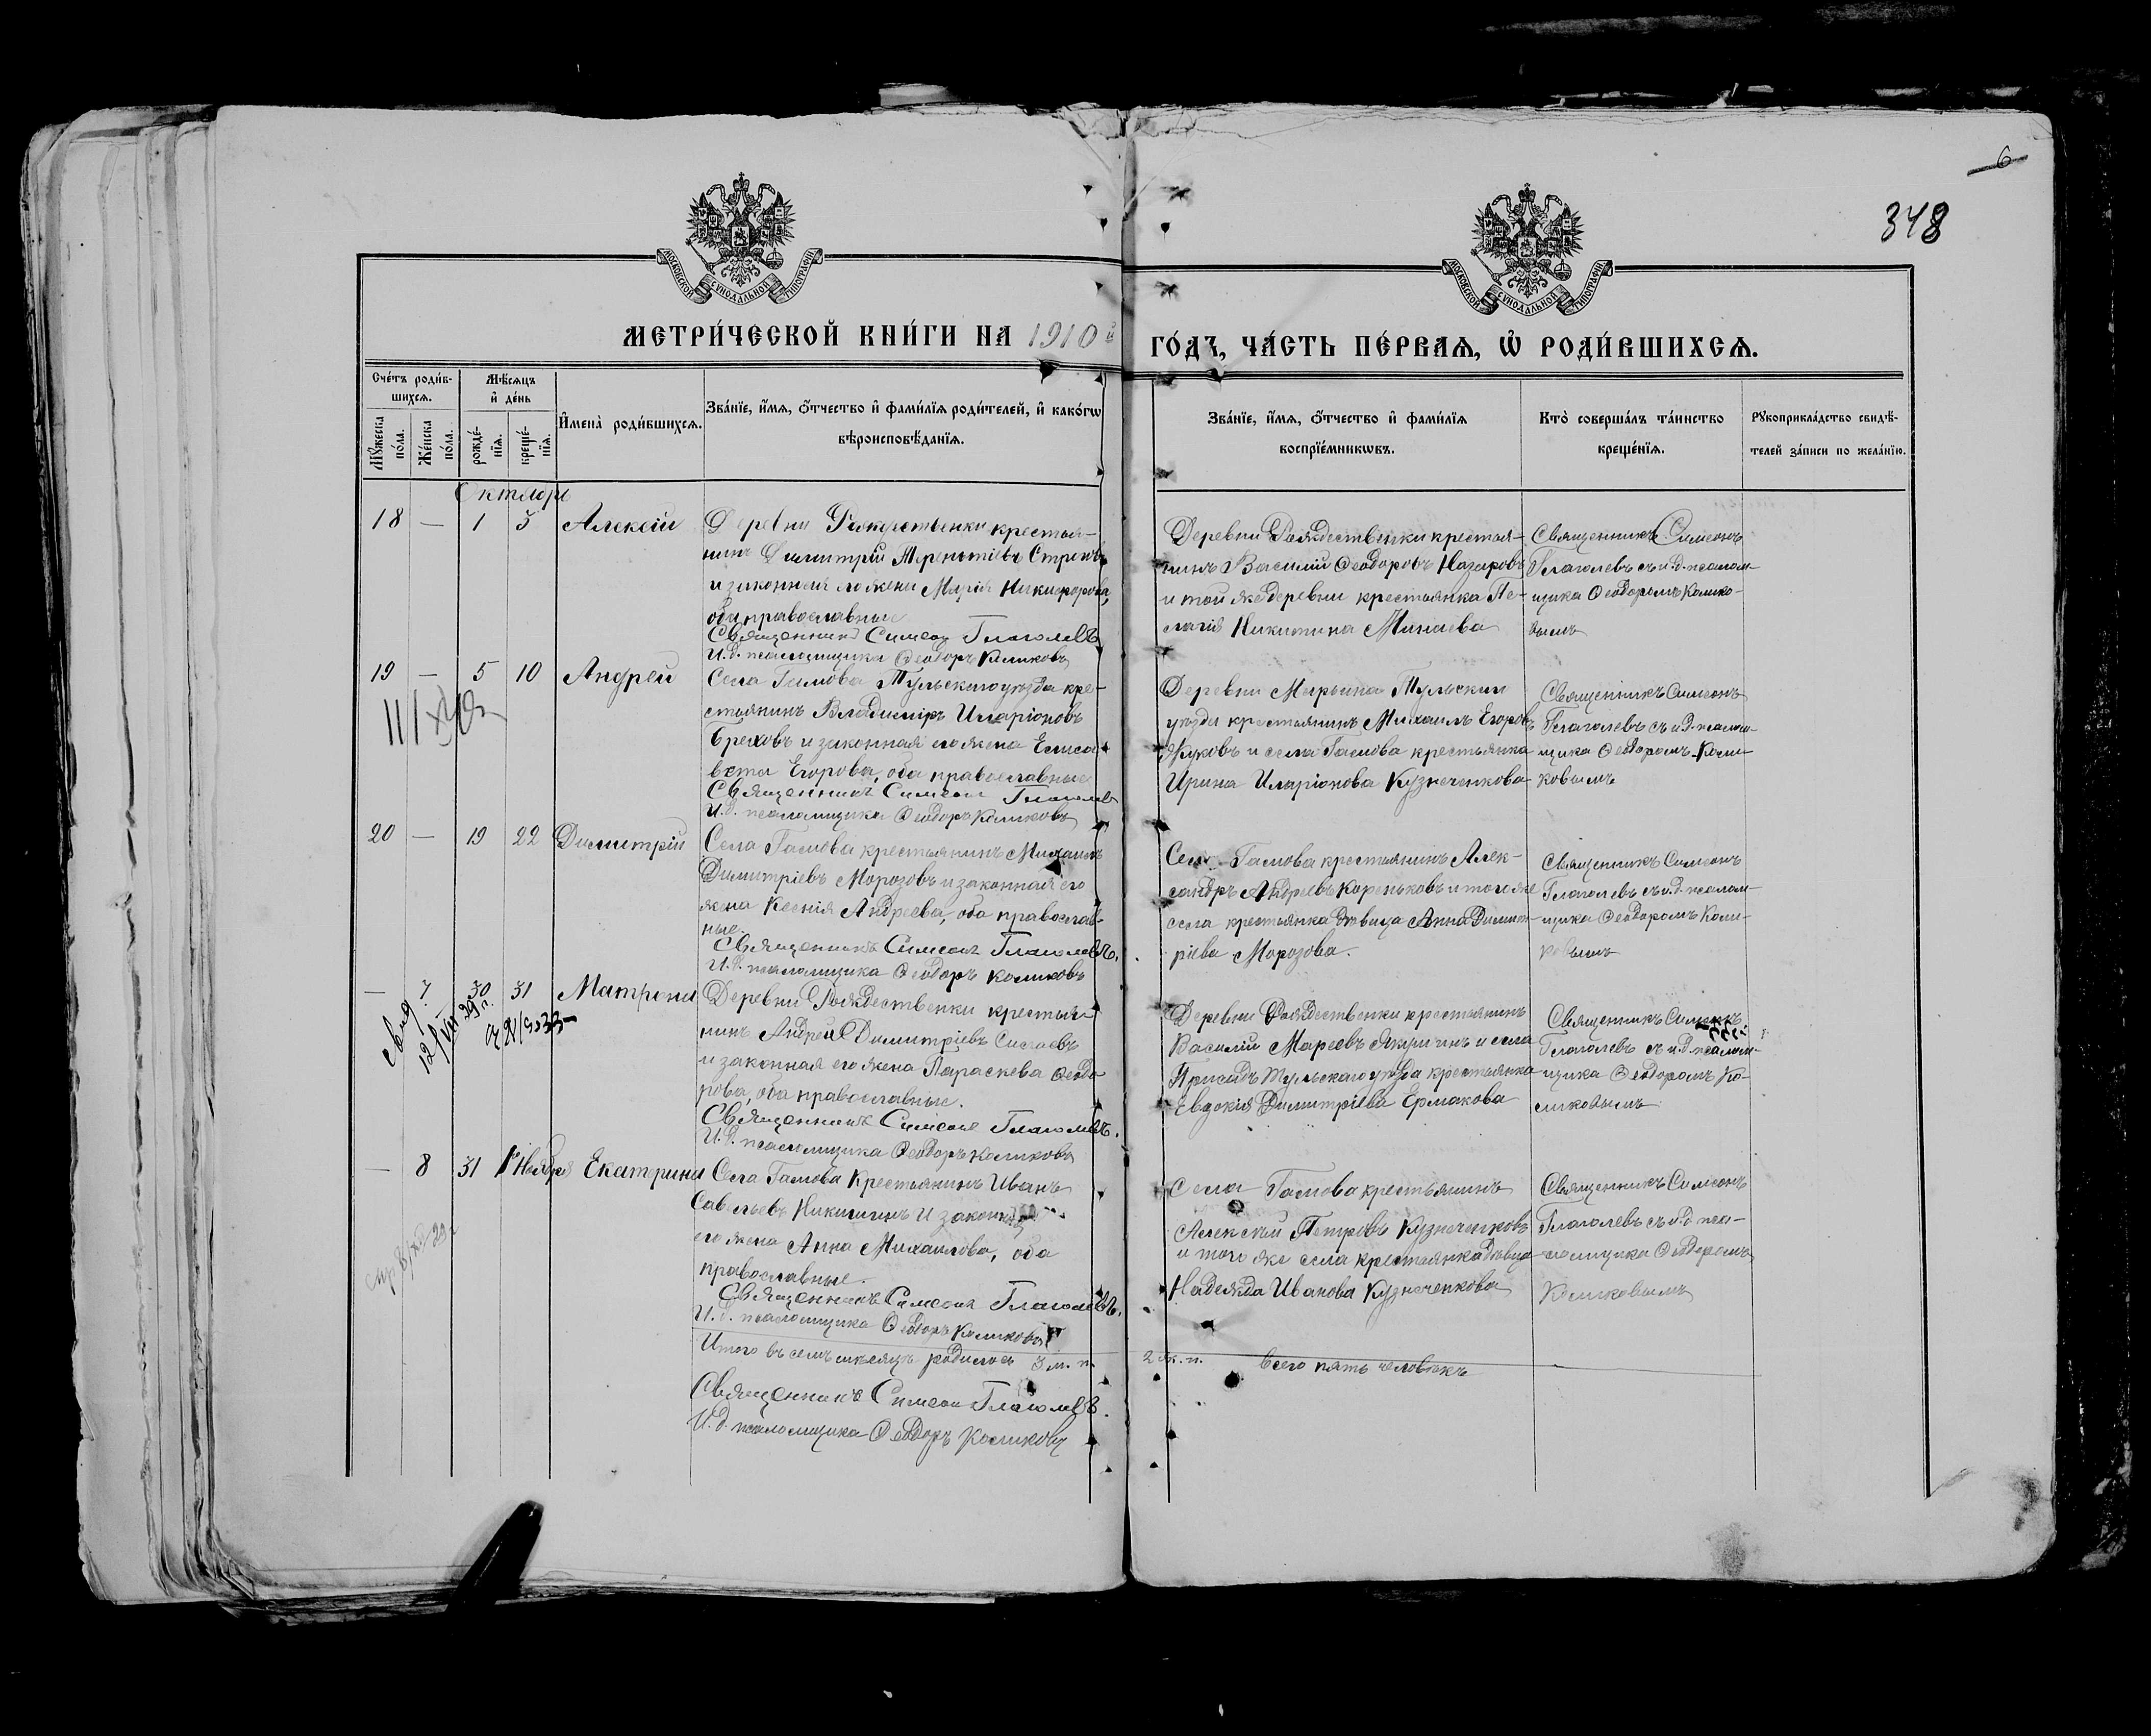 6
348
МОСКОВСКОЙ СѴНОДАЛЬНОЙ ТИПОГРАФІИ
МОСКОВСКОЙ СѴНОДАЛЬНОЙ ТИПОГРАФІИ
МЕТРИ́ЧЕСКОЙ КНИ́ГИ НА 1910й
ГО́ДЪ, ЧА́СТЬ ПЕ́РВАѦ, Ѡ҆ РОДИ́ВШИХСѦ.
Сче́тъ роди́в-
шихсѧ.
Мꙋ́жеска по́ла.
Же́нска по́ла.
Мѣ́сѧцъ и҆ де́нь
рожде́-
нїѧ.
креще́-
нїѧ.
И҆мена̀ роди́вшихсѧ.
Зва́нїе, и҆́мѧ, ѻ҆́тчество и҆ фами́лїѧ роди́телей, и҆ како́гѡ
вѣроисповѣ́данїѧ.
Зва́нїе, и҆́мѧ, ѻ҆́тчество и҆ фами́лїѧ
воспрїе́мникѡвъ.
Кто̀ соверша́лъ та́инство
креще́нїѧ.
Рꙋкоприкла́дство свидѣ́-
телей за́писи по жела́нїю.
Октября
18 — 1 3 Алексiй
Деревни Рождественки крестья-
нинъ Димитрiй Терентiевъ
и законная его жена Марiя Никифорова,
оба православные
Священникъ Симеонъ Глаголевъ
И.д. псаломщика Ѳеодоръ Коликовъ
Деревни Рождественки крестья-
нинъ Василiй Ѳеодоровъ Назаровъ
и той же деревни крестьянка Пе-
лагiя Никитина Минаева
Священникъ Симеонъ
Глаголевъ съ и.д. псалом-
щика Ѳеодоромъ Колико-
вымъ
19 — 5 10 Андрей
Села Гамова Тульскаго уѣзда кре-
стьянинъ Владимiръ Иларiоновъ
Ореховъ и законная его жена Елиса-
вета Егорова, оба православные
Священникъ Симеонъ Глаголевъ
И.д. псаломщика Ѳеодоръ Коликовъ
Деревни Марьина Тульскаго
уѣзда крестьянинъ Михаилъ Егоровъ
Жуковъ и села Гамова крестьянка
Ирина Иларiонова Кузнеченкова
Священникъ Симеонъ
Глаголевъ съ и.д. псалом-
щика Ѳеодоромъ Коли-
ковымъ
20 — 19 22 Димитрiй
Села Гамова крестьянинъ Михаилъ
Димитрiевъ Морозовъ и законная его
жена Ксенiя Андреева, оба православ-
ные.
Священникъ Симеонъ Глаголевъ.
И.д. псаломщика Ѳеодоръ Коликовъ
Села Гамова крестьянинъ Алек-
сандръ Андреевъ Кореньковъ и того же
села крестьянка дѣвица Анна Димит-
рiева Морозова.
Священникъ Симеонъ
Глаголевъ съ и.д. псалом-
щика Ѳеодоромъ Коли-
ковымъ
— 7 30 31 Матрона
Деревни Рождественки крестья-
нинъ Андрей Димитрiевъ
и законная его жена Параскева Ѳеодо-
рова, оба православные.
Священникъ Симеонъ Глаголевъ.
И.д. псаломщика Ѳеодоръ Коликовъ
Деревни Рождественки крестьянинъ
Василiй и села
Присадъ Тульскаго уѣзда крестьянка
Евдокiя Димитрiева Ермакова
Священникъ Симеонъ
Глаголевъ съ и.д. псалом-
щика Ѳеодоромъ Ко-
ликовымъ
— 8 31 1 Ноября Екатерина
Села Гамова крестьянинъ Иванъ
Савельевъ Никишинъ и законная
его жена Анна Михаилова, оба
православные.
Священникъ Симеонъ Глаголевъ.
И.д. псаломщика Ѳеодоръ Коликовъ
Села Гамова крестьянинъ
Алексѣй Петровъ Кузнеченковъ
и того же села крестьянка дѣвица
Надежда Иванова Кузнеченкова
Священникъ Симеонъ
Глаголевъ съ и.д. пса-
ломщика Ѳеодоромъ
Коликовымъ
Итого въ семъ мѣсяцѣ родилось 3 м. п.
2 ж. п. всего пять человѣкъ
Священникъ Симеонъ Глаголевъ.
И.д. псаломщика Ѳеодоръ Коликовъ